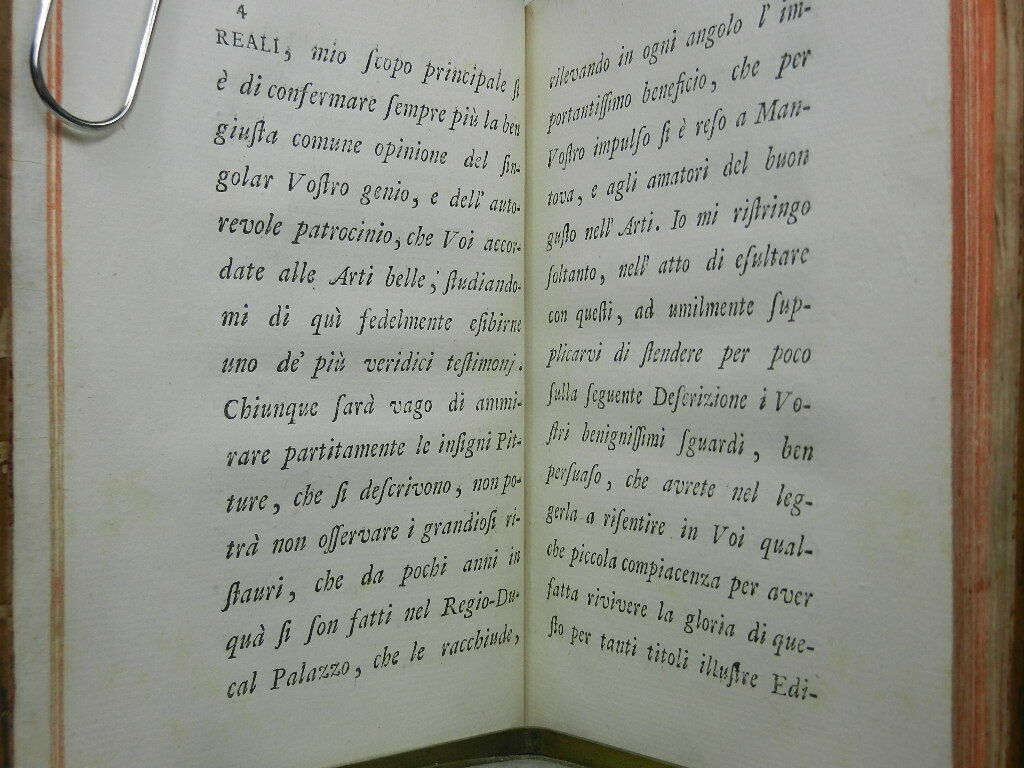 4
REALI, mio ſcopo principale ſi
è di confermare ſempre più la ben
giuſta comune opinione del ſin-
golar Voſtro genio, e dell' auto-
revole patrocinio, che Voi accor-
date alle Arti belle; ſtudiando-
mi di quì fedelmente eſibirne
uno de' più veridici teſtimonj.
Chiunque ſarà vago di ammi-
rare partitamente le inſigni Pit-
ture, che ſi deſcrivono, non po-
trà non oſſervare i grandioſi ri-
ſtauri, che da pochi anni in
quà ſi ſon fatti nel Regio-Du-
cal Palazzo, che le racchiude,
rilevando in ogni angolo l' im-
portantiſſimo beneficio, che per
Voſtro impulſo ſi è reſo a Man-
tova, e agli amatori del buon
guſto nell' Arti. Io mi riſtringo
ſoltanto, nell' atto di eſultare
con queſti, ad umilmente ſup-
plicarvi di ſtendere per poco
ſulla ſeguente Deſcrizione i Vo-
ſtri benigniſſimi ſguardi, ben
perſuaſo, che avrete nel leg-
gerla a riſentire in Voi qual-
che piccola compiacenza per aver
fatta rivivere la gloria di que-
ſto per tanti titoli illuſtre Edi-